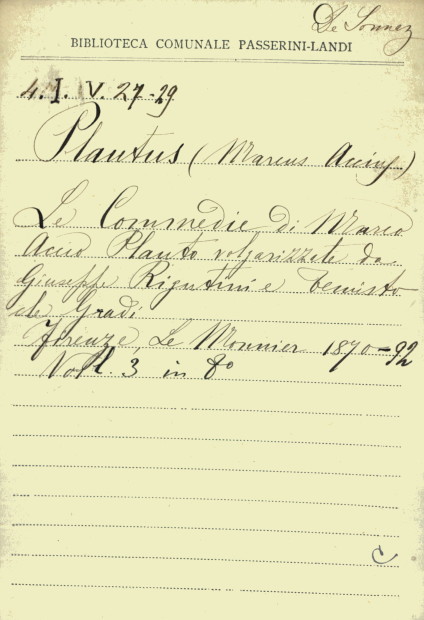 De Sonnez
BIBLIOTECA COMUNALE PASSERINI-LANDI
4. I. V. 27-29
Plautus (Marcus Accius)
Le Commedie di Marco
Accio Plauto volgarizzate da
Giuseppe Rigutini e Temisto-
cle Gradi
Firenze, Le Monnier 1870-92
Vol. 3 in 8º
C